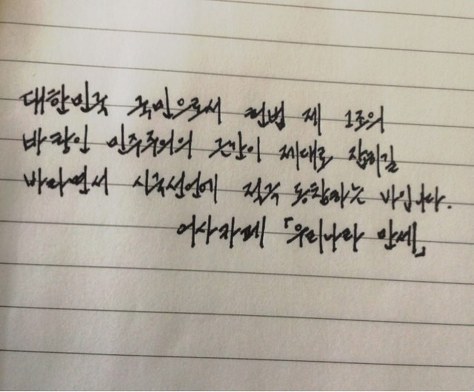 대한민국 국민으로서 헌법 제 1조의
바탕인 민주주의의 근간이 제대로 잡히길
바라면서 시국선언에 적극 동참하는 바입니다.
「우리나라 만세」